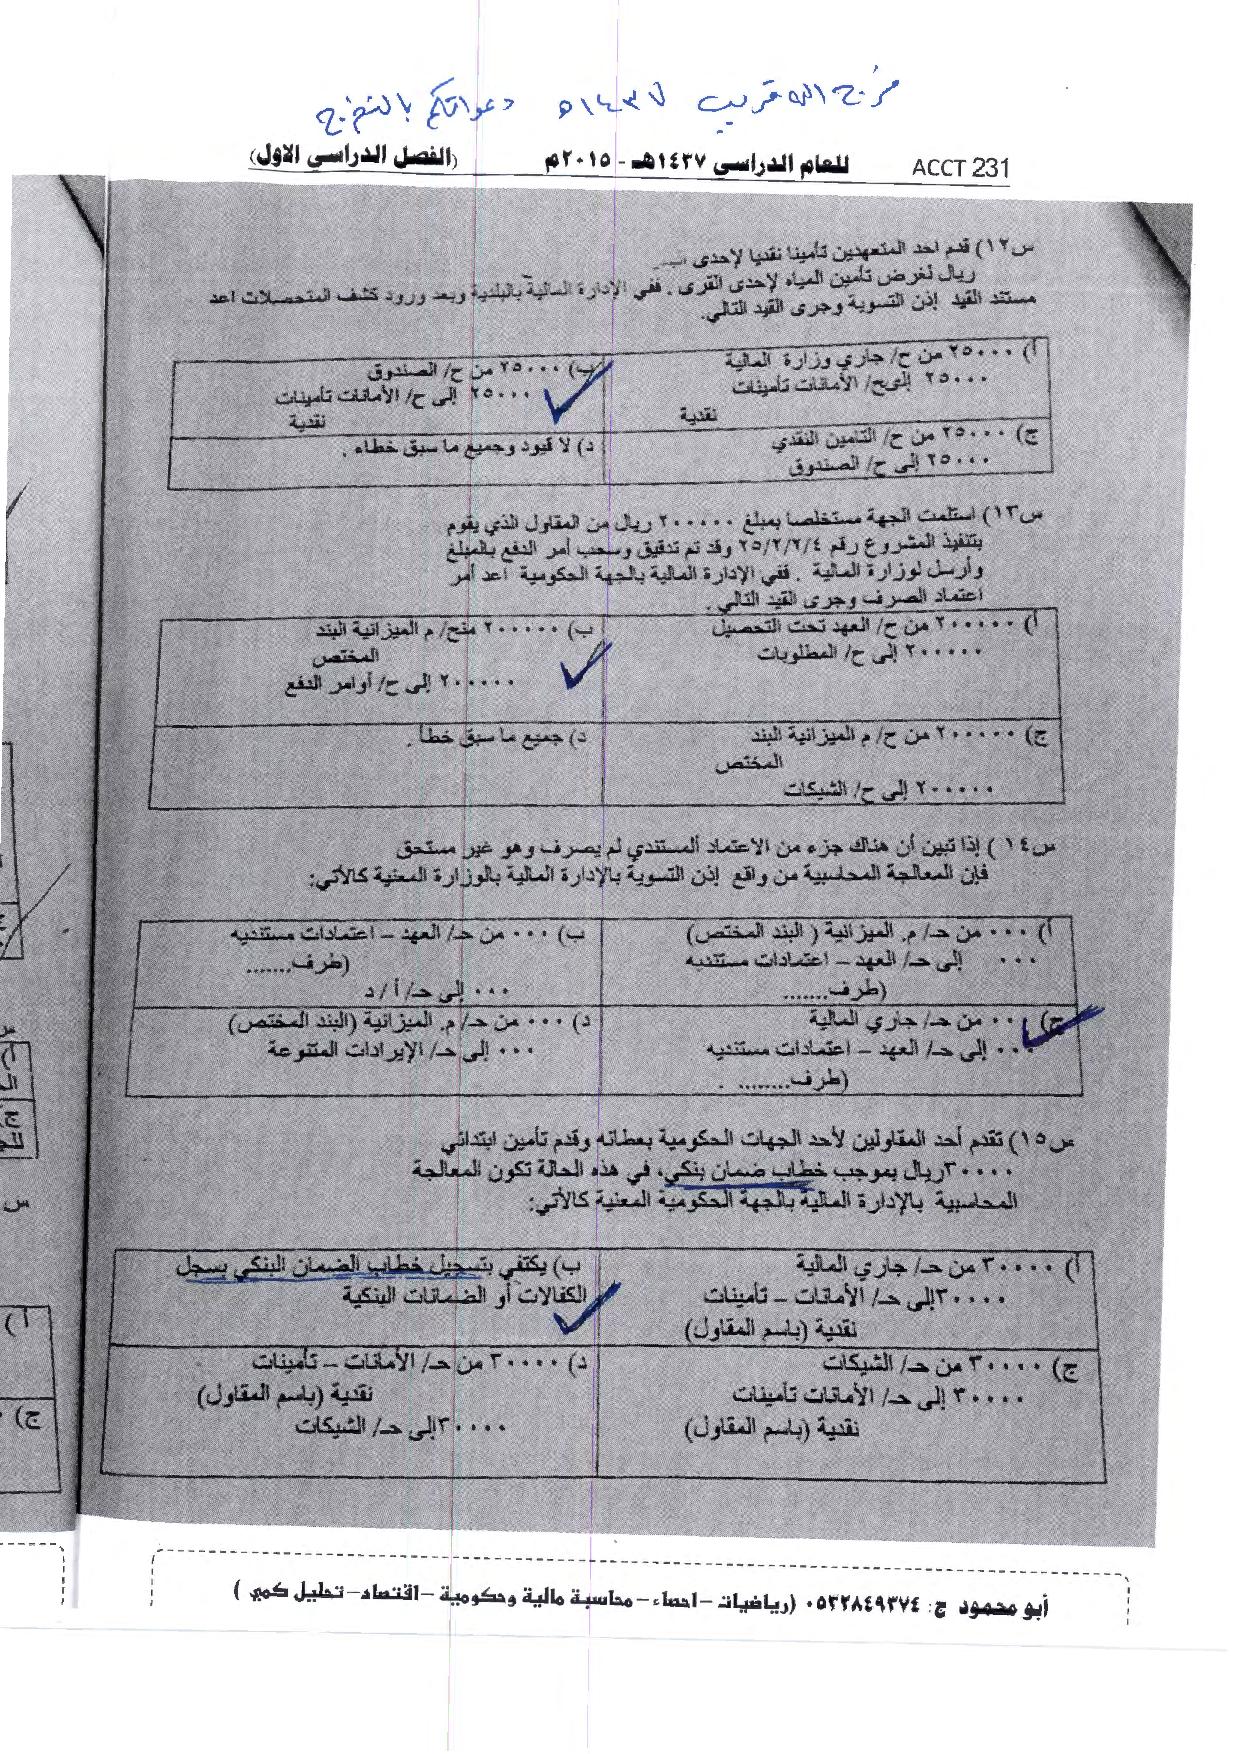 فرج الله قريب ١٤٣٧هـ دعواتكم بالتخرج
ACCT 231 للعام الدراسي ١٤٣٧هـ - ٢٠١٥م (الفصل الدراسي الاول)
س١٢) قدم احد المتعهدين تأمينا نقديا لإحدى
ريال لغرض تأمين المياه لإحدى القرى . ففي الإدارة المالية بالبلدية وبعد ورود كشف المتحصلات اعد
مستند القيد إذن التسوية وجرى القيد التالي.
أ) ٢٥٠٠٠ من ح/ جاري وزارة المالية
٢٥٠٠٠ إلى ح/ الأمانات تأمينات
نقدية
ب) ٢٥٠٠٠ من ح/ الصندوق
٢٥٠٠٠ إلى ح/ الأمانات تأمينات
نقدية
ج) ٢٥٠٠٠ من ح/ التامين النقدي
٢٥٠٠٠ إلى ح/ الصندوق
د) لا قيود وجميع ما سبق خطاء .
س١٣) استلمت الجهة مستخلصا بمبلغ ٢٠٠٠٠٠ ريال من المقاول الذي يقوم
بتنفيذ المشروع رقم ٢٥/٢/٢/٤ وقد تم تدقيق وسحب أمر الدفع بالمبلغ
وأرسل لوزارة المالية . ففي الإدارة المالية بالجهة الحكومية اعد أمر
اعتماد الصرف وجرى القيد التالي .
أ) ٢٠٠٠٠٠ من ح/ العهد تحت التحصيل
٢٠٠٠٠٠ إلى ح/ المطلوبات
ب) ٢٠٠٠٠٠ منح/ م الميزانية البند
المختص
٢٠٠٠٠٠ إلى ح/ أوامر الدفع
ج) ٢٠٠٠٠٠ من ح/ م الميزانية البند
المختص
٢٠٠٠٠٠ إلى ح/ الشيكات
د) جميع ما سبق خطأ .
س١٤ ) إذا تبين أن هناك جزء من الاعتماد المستندي لم يصرف وهو غير مستحق
فإن المعالجة المحاسبية من واقع إذن التسوية بالإدارة المالية بالوزارة المعنية كالأتي:
أ) ٠٠٠ من حـ/ م. الميزانية ( البند المختص)
٠٠٠ إلى حـ/ العهد – اعتمادات مستنديه
(طرف.......
ب) ٠٠٠ من حـ/ العهد – اعتمادات مستنديه
(طرف.......
٠٠٠ إلى حـ/ أ / د
ج) ٠٠٠ من حـ/ جاري المالية
٠٠٠ إلى حـ/ العهد – اعتمادات مستنديه
(طرف........ .
د) ٠٠٠ من حـ/ م. الميزانية (البند المختص)
٠٠٠ إلى حـ/ الإيرادات المتنوعة
س١٥) تقدم أحد المقاولين لأحد الجهات الحكومية بعطائه وقدم تأمين ابتدائي
٣٠٠٠٠ريال بموجب خطاب ضمان بنكي، في هذه الحالة تكون المعالجة
المحاسبية بالإدارة المالية بالجهة الحكومية المعنية كالأتي:
أ) ٣٠٠٠٠ من حـ/ جاري المالية
٣٠٠٠٠إلى حـ/ الأمانات – تأمينات
نقدية (باسم المقاول)
ب) يكتفي بتسجيل خطاب الضمان البنكي بسجل
الكفالات أو الضمانات البنكية
ج) ٣٠٠٠٠ من حـ/ الشيكات
٣٠٠٠٠ إلى حـ/ الأمانات تأمينات
نقدية (باسم المقاول)
د) ٣٠٠٠٠ من حـ/ الأمانات – تأمينات
نقدية (باسم المقاول)
٣٠٠٠٠إلى حـ/ الشيكات
أبو محمود ج: ٠٥٣٢٨٤٩٣٧٤ (رياضيات –احصاء –محاسبة مالية وحكومية –اقتصاد–تحليل كمي )